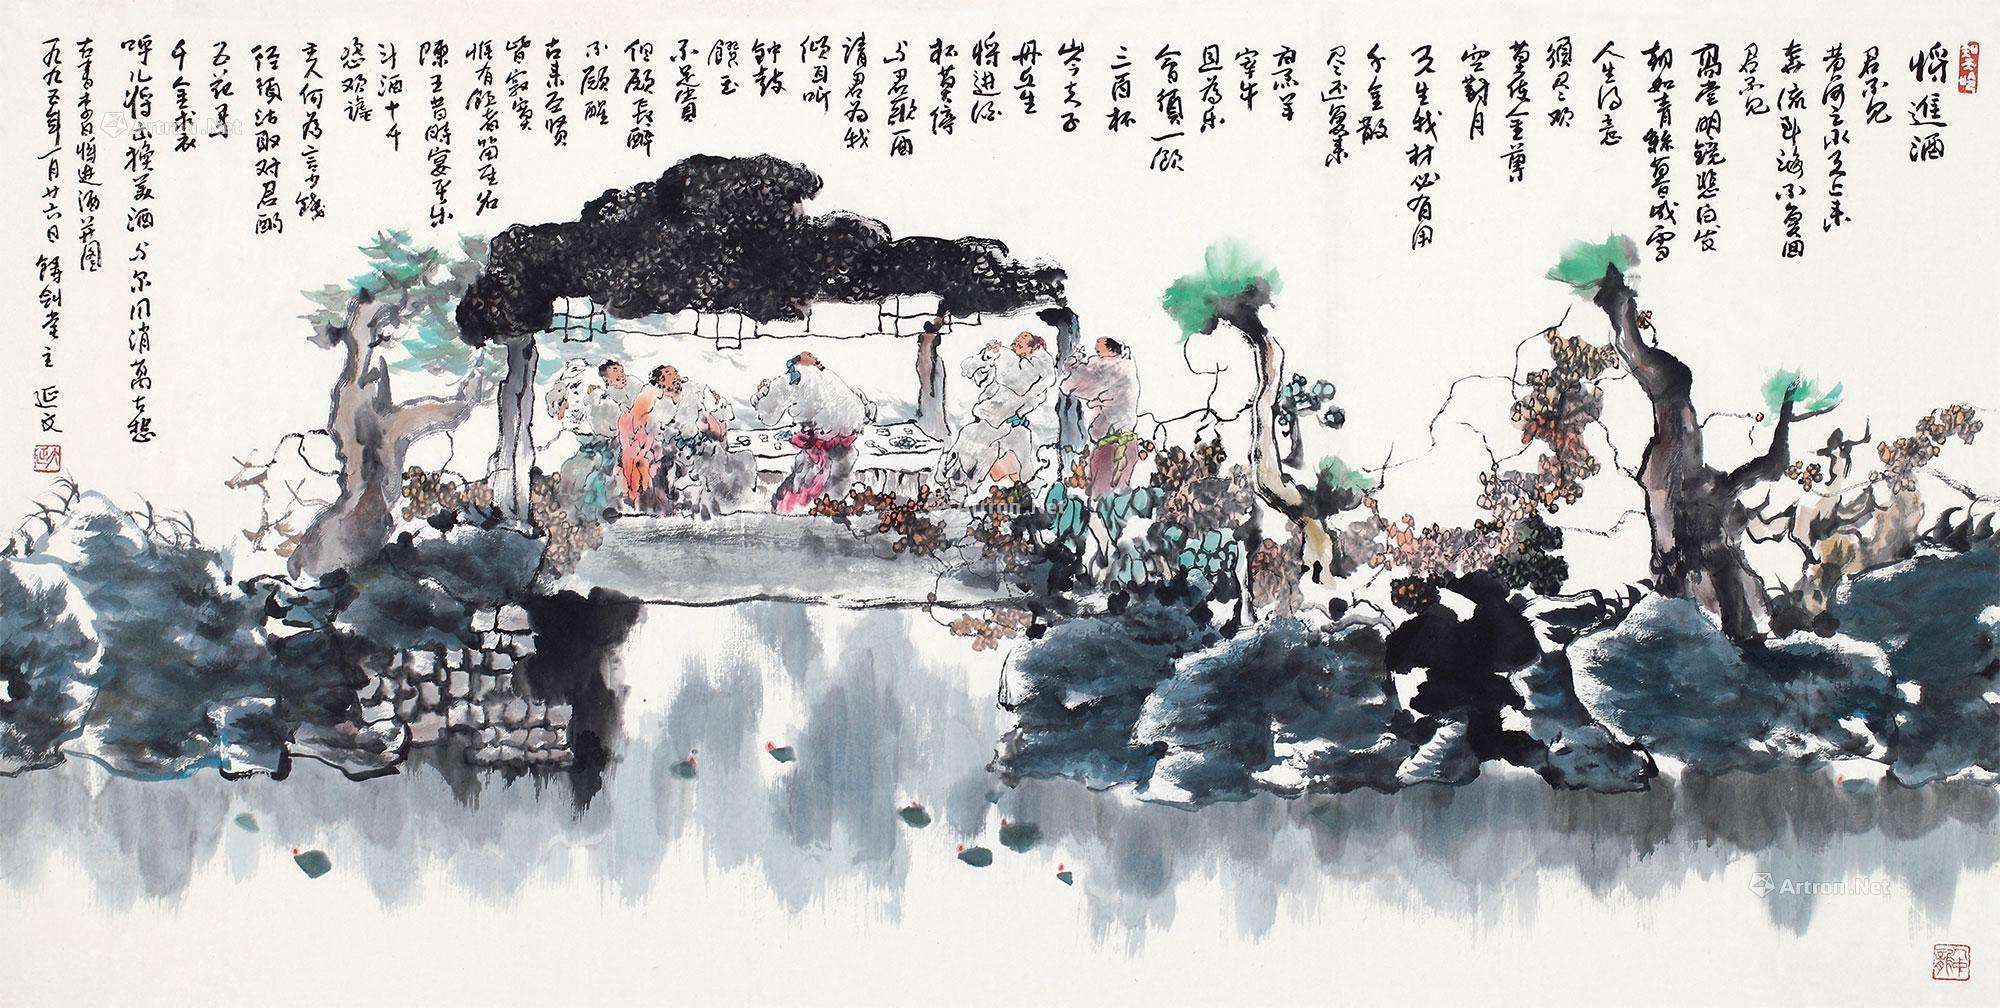 將進酒
君不見
黄河之水天上来
奔流到海不復回
君不見
高堂明鏡悲白发
朝如青絲暮成雪
人生得意
須尽欢
莫使金尊
空對月
天生我材必有用
千金散
尽还復来
烹羊
宰牛
且為乐
會須一飲
三百杯
岑夫子
丹丘生
将進酒
杯莫停
与君歌一曲
請君为我
傾耳听
钟鼓
饌玉
不足貴
但願長醉
不願醒
古来圣賢
皆寂寞
惟有飲者留其名
陳王昔時宴平乐
斗酒十千
恣欢謔
主人何為言少錢
徑須沽取对君酌
五花马
千金裘
呼儿将出換美酒与尔同消萬古愁
右書李白将进酒并图
一九九五年一月廿六日 鑄劍堂主 延文
Artron.Net
Artron.Net